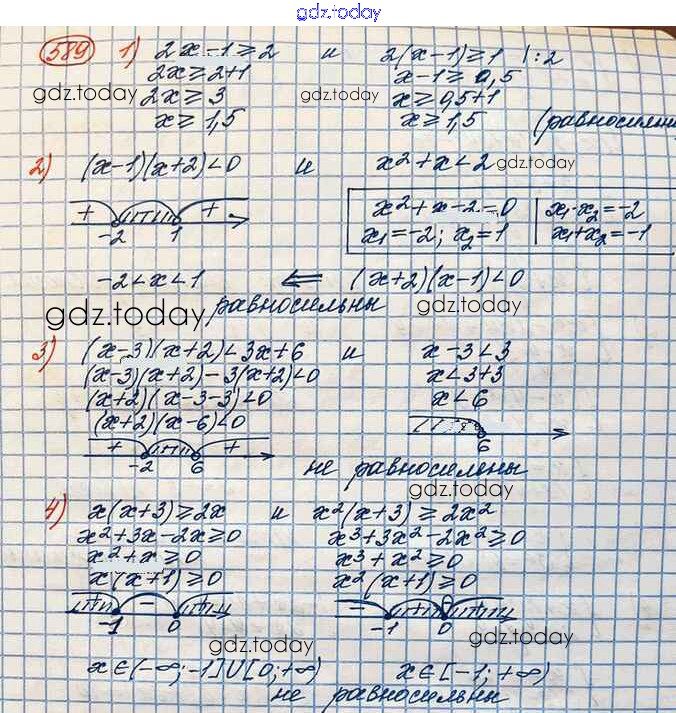 gdz.today
589 1) 2x-1≥2 и 2(x-1)≥1 |:2
2x≥2+1 x-1≥0,5
gdz.today 2x≥3 gdz.today x≥0,5+1
x≥1,5 x≥1,5 (равносильны
2) (x-1)(x+2)<0 и x²+x<2 gdz.today
+ + x²+x-2=0 x₁·x₂=-2
-2 1 x₁=-2; x₂=1 x₁+x₂=-1
-2<x<1 ⇐ (x+2)(x-1)<0
gdz.today равносильны gdz.today
3) (x-3)(x+2)<3x+6 и x-3<3
(x-3)(x+2)-3(x+2)<0 x<3+3
(x+2)(x-3-3)<0 x<6
(x+2)(x-6)<0
+ +
-2 6 6
не равносильны
gdz.today
4) x(x+3)≥2x и x²(x+3)≥2x²
x²+3x-2x≥0 x³+3x²-2x²≥0
x²+x≥0 x³+x²≥0
x(x+1)≥0 x²(x+1)≥0
+ - + - +
-1 0 -1 0
gdz.today gdz.today
x∈(-∞;-1]∪[0;+∞) x∈[-1;+∞)
не равносильны
gdz.today